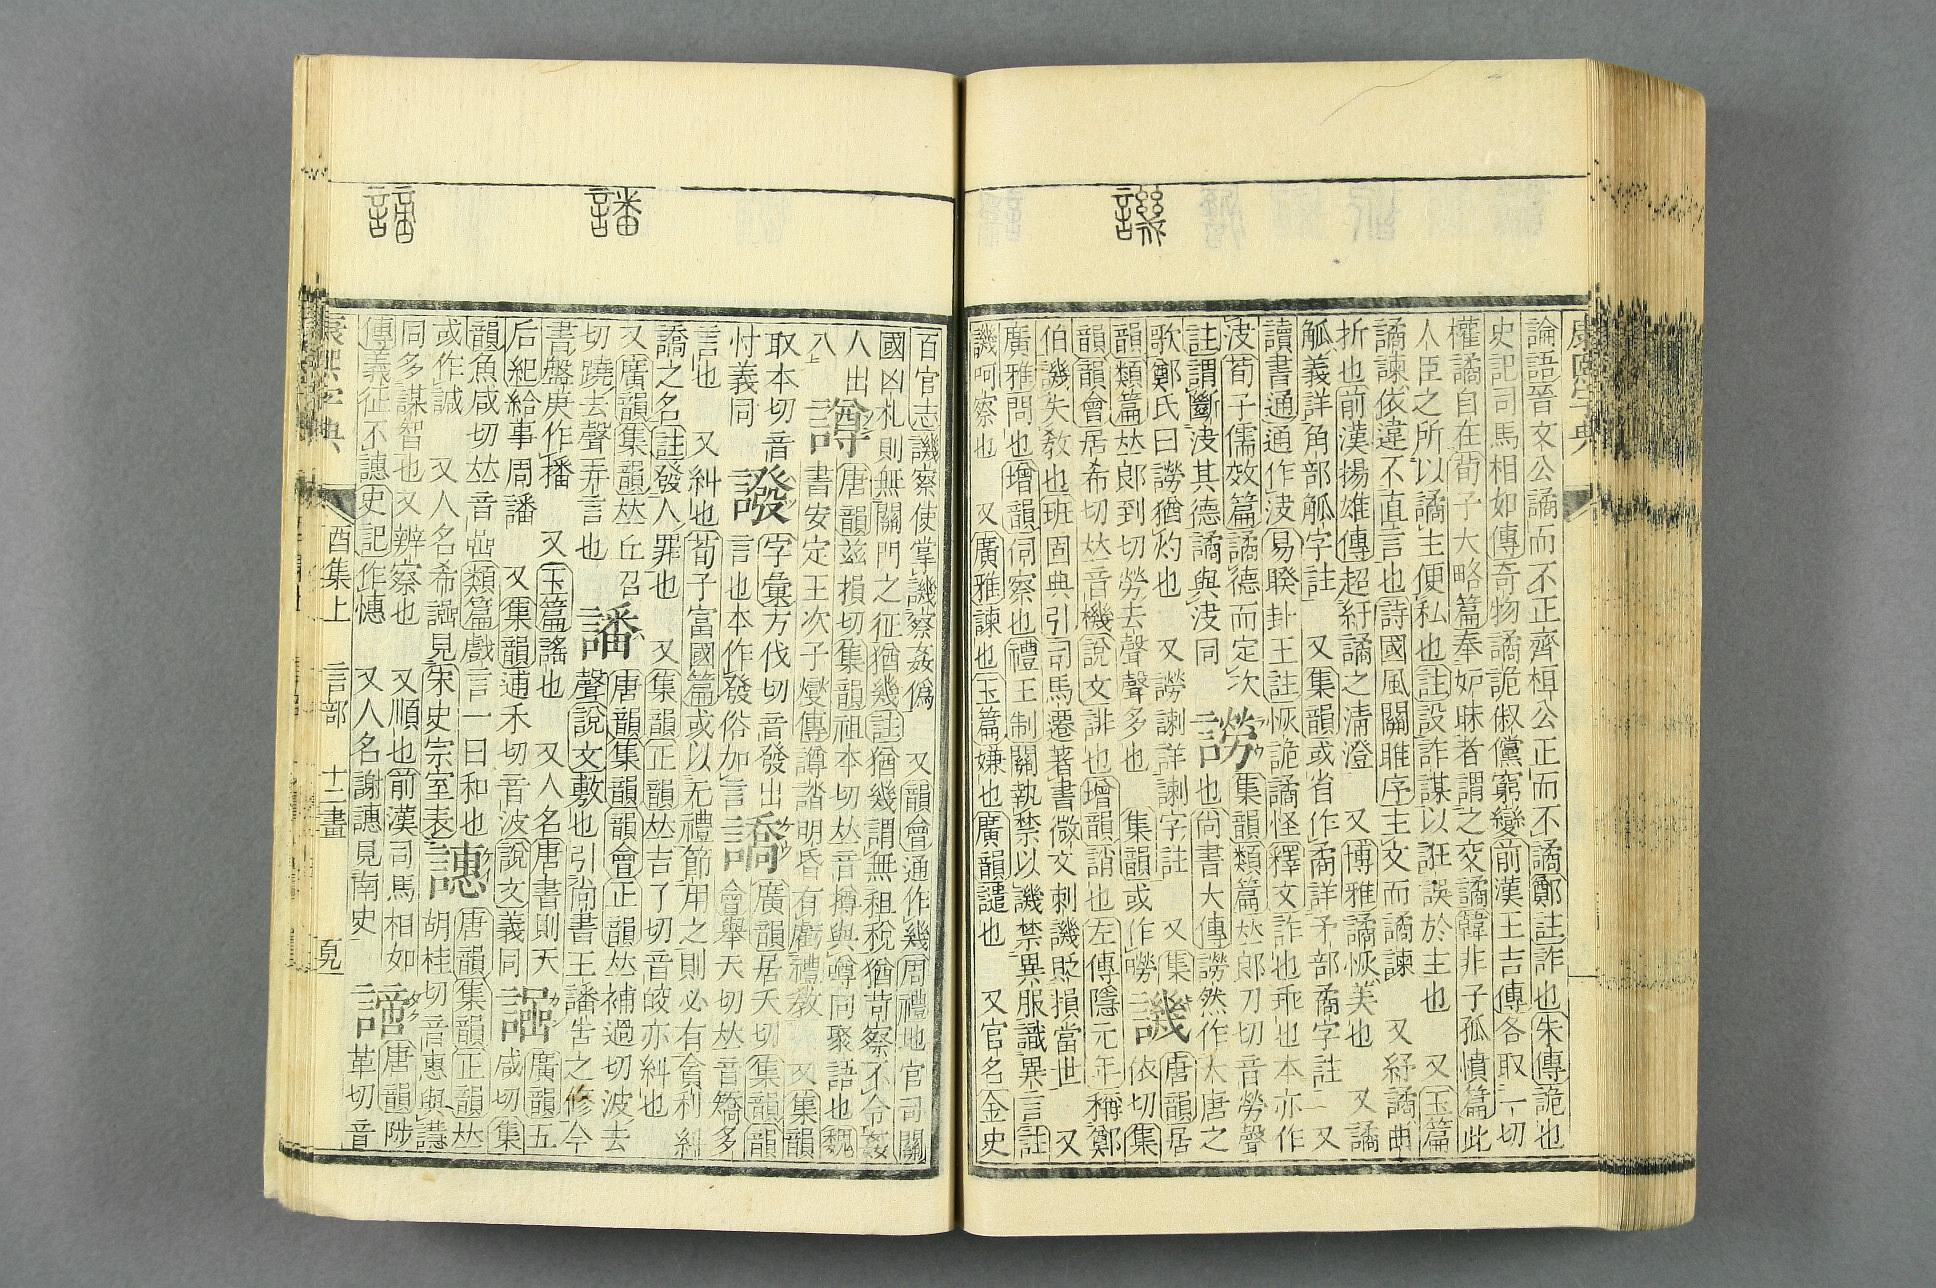 譏
論語晉文公譎而不正齊桓公正而不譎鄭註詐也朱傳詭也
史記司馬相如傳奇物譎詭俶儻窮變前漢王吉傳各取一切
權譎自在荀子大略篇奉妒昧者謂之交譎韓非子孤憤篇此
人臣之所以譎主便私也註設詐謀以誑誤於主也 又玉篇
譎諫依違不直言也詩國風關睢序主文而譎諫 又紆譎曲
折也前漢揚雄傳超紆譎之淸澄 又博雅譎恑美也 又譎
觼義詳角部觼字註 又集韻或省作矞詳矛部矞字註 又
讀書通通作決易睽卦王註恢詭譎怪釋文詐也乖也本亦作
決荀子儒效篇譎德而定次
註謂斷決其德譎與決同
譑 
集韻類篇𠀤郞刀切音勞聲
也尚書大傳謗然作大唐之
歌鄭氏曰謗猶灼也 又謗謝詳謝字註 又集
韻類篇𠀤郞到切勞去聲聲多也 集韻或作嘮
譏
唐韻居依切集
韻韻會居希切𠀤音機說文誹也增韻誚也左傳隱元年稱鄭
伯譏失敎也班固典引司馬遷著書微文刺譏貶損當世 又
廣雅問也增韻伺察也禮王制關執禁以譏禁異服識異言註
譏呵察也 又廣雅諫也玉篇嫌也廣韻譴也 又官名金史
潘
百官志譏察使掌譏察姦僞 又韻會通作幾周禮地官司關
國凶札則無關門之征猶幾註猶幾謂無租稅猶苛察不令姦
人出
入
譐
唐韻兹損切集韻祖本切𠀤音撙與噂同聚語也魏
書安定王次子燮傳譐誻明昏有虧禮敎 又集韻
取本切音
忖義同
䛀
字彙方伐切音發出
言也本作發俗加言
譑
廣韻居夭切集韻韻
會舉夭切𠀤音矯多
言也 又糾也荀子富國篇或以无禮節用之則必有貪利糾
譑之名註發人罪也 又集韻正韻𠀤吉了切音皎亦糾也
又廣韻集韻𠀤丘召
切蹺去聲弄言也
譒
唐韻集韻韻會正韻𠀤補過切波去
聲說文敷也引尚書王譒告之修今
書盤庚作播 又玉篇謠也 又人名唐書則天
后紀給事周譒 又集韻逋禾切音波說文義同
廣韻五
咸切集
韻魚咸切𠀤音嵒類篇戲言一曰和也
或作諴 又人名希見宋史宗室表
譓
唐韻集韻正韻𠀤
胡桂切音惠與譿
同多謀智也又辨察也 又順也前漢司馬相如
傳義征不譓史記作憓 又人名謝譓見南史
唐韻陟
革切音
康熙字典
酉集上 言部 十二畫